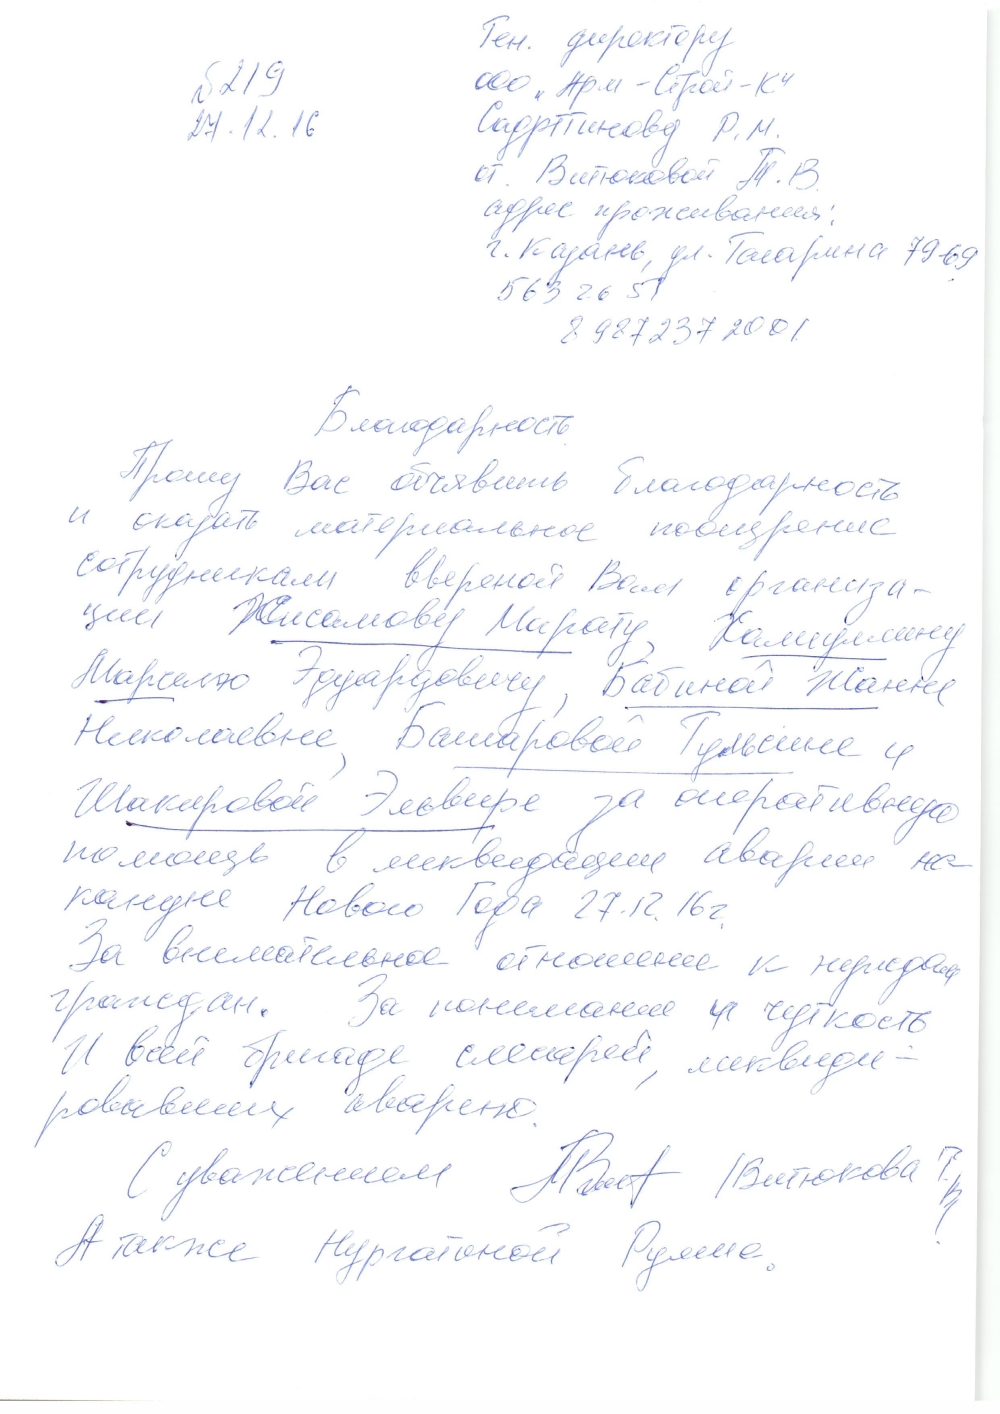 №219
27.12.16
Ген. директору
ООО „Арм-Строй-К“
Садртдинову Р.М.
от Витюковой Т.В.
адрес проживания:
г. Казань, ул. Гагарина 79-69
563 26 51
8 987 237 2001
Благодарность
Прошу Вас объявить благодарность
и оказать материальное поощрение
сотрудникам ввереной Вам организа-
ции Хисамову Марату, Хамуллину
Марселю Эдуардовичу, Бабиной Жанне
Николаевне, Башаровой Гульсине и
Шакировой Эльвире за оперативную
помощь в ликвидации аварии на-
кануне Нового Года 27.12.16г.
За внимательное отношение к нуждам
граждан. За понимание и чуткость
И всей бригаде слесарей, ликвиди-
ровавших аварию.
С уважением /Витюкова Т.В/
А также Румие.